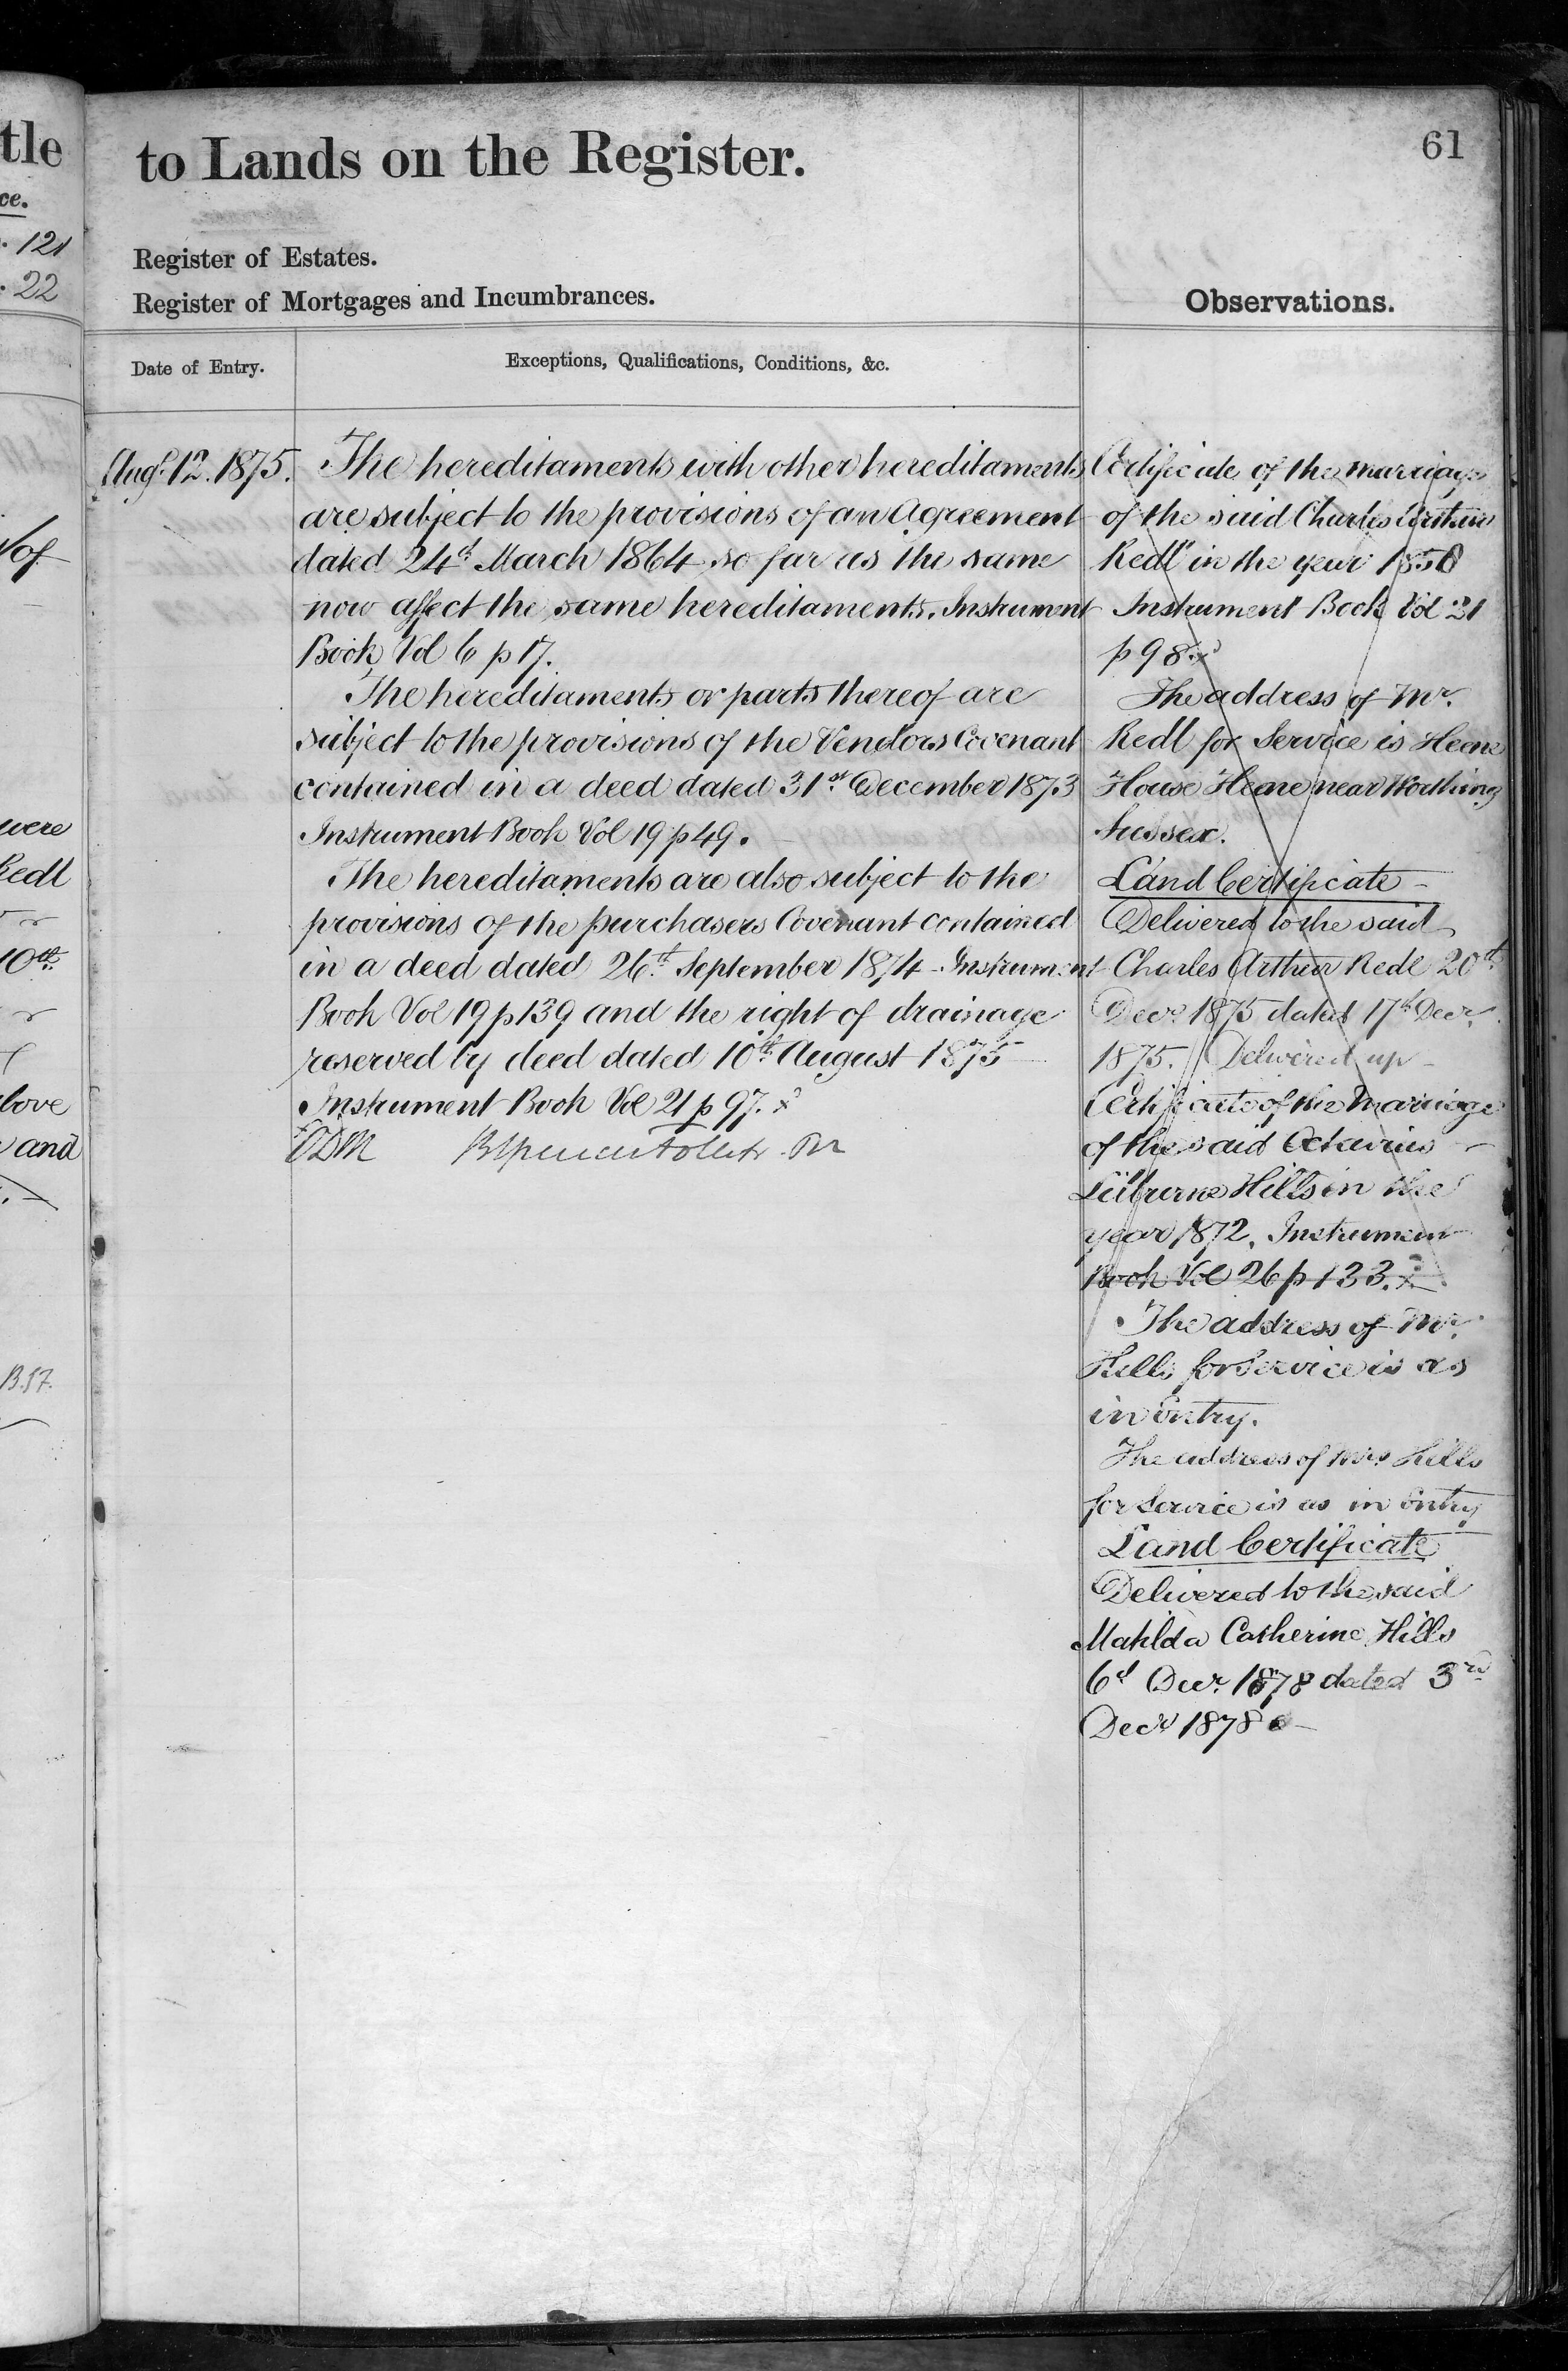 tle
ce.
. 121
. 22
of
were
Redl
10th
above
and
B.57.
to Lands on the Register.
61
Register of Estates.
Register of Mortgages and Incumbrances.
Observations.
Date of Entry.
Exceptions, Qualifications, Conditions, &c.
Augt. 12. 1875.
The hereditaments with other hereditaments
are subject to the provisions of an Agreement
dated 24th March 1864 so far as the same
now affect the same hereditaments. Instrument
Book Vol 6 p 17.
The hereditaments or parts thereof are
subject to the provisions of the Vendors Covenant
contained in a deed dated 31st December 1873
Instrument Book Vol 19 p 49.
The hereditaments are also subject to the
provisions of the purchasers Covenant contained
in a deed dated 26th September 1874 Instrument
Book Vol 19 p 139 and the right of drainage
reserved by deed dated 10th August 1875
Instrument Book Vol 21 p 97. x
Certificate of the marriage
of the said Charles Arthur
Redl in the year 1856
Instrument Book Vol 21
p 98 x
The address of Mr.
Redl for Service is Heene
House Heene near Worthing
Sussex.
Land Certificate
Delivered to the said
Charles Arthur Redl 20th
Decr. 1875 dated 17th Decr.
1875. Delivered up
Certificate of the Marriage
of the said Octavius
Hills in the
year 1872. Instrument
Book Vol 26 p 133. x
The address of Mr.
Hills for Service is as
in Entry.
The address of Mrs Hills
for Service is as in Entry
Land Certificate
Delivered to the said
Matilda Catherine Hills
6th Decr. 1878 dated 3rd
Decr 1878